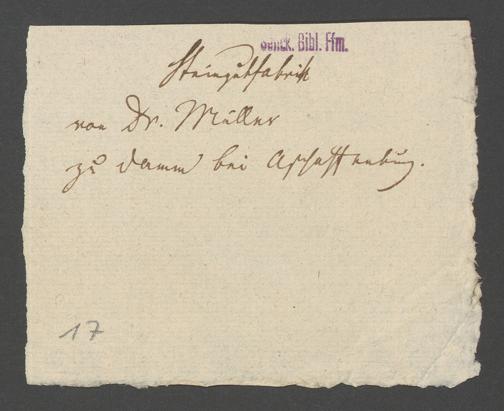 Senck. Bibl. Ffm.
Steingutfabrik
von Dr. Müller
zu Damm bei Aschaffenburg.
17